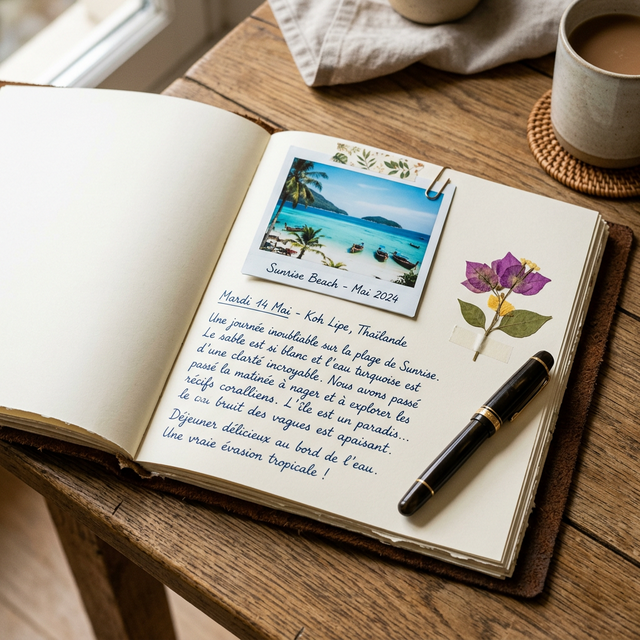 Sunrise Beach - Mai 2024
Mardi 14 Mai - Koh Lipe, Thaïlande
Une journée inoubliable sur la plage de Sunrise.
Le sable est si blanc et l'eau turquoise est
d'une clarté incroyable. Nous avons passé
passé la matinée à nager et à explorer les
récifs coralliens. L'île est un paradis...
le bruit des vagues est apaisant.
Déjeuner délicieux au bord de l'eau.
Une vraie évasion tropicale !